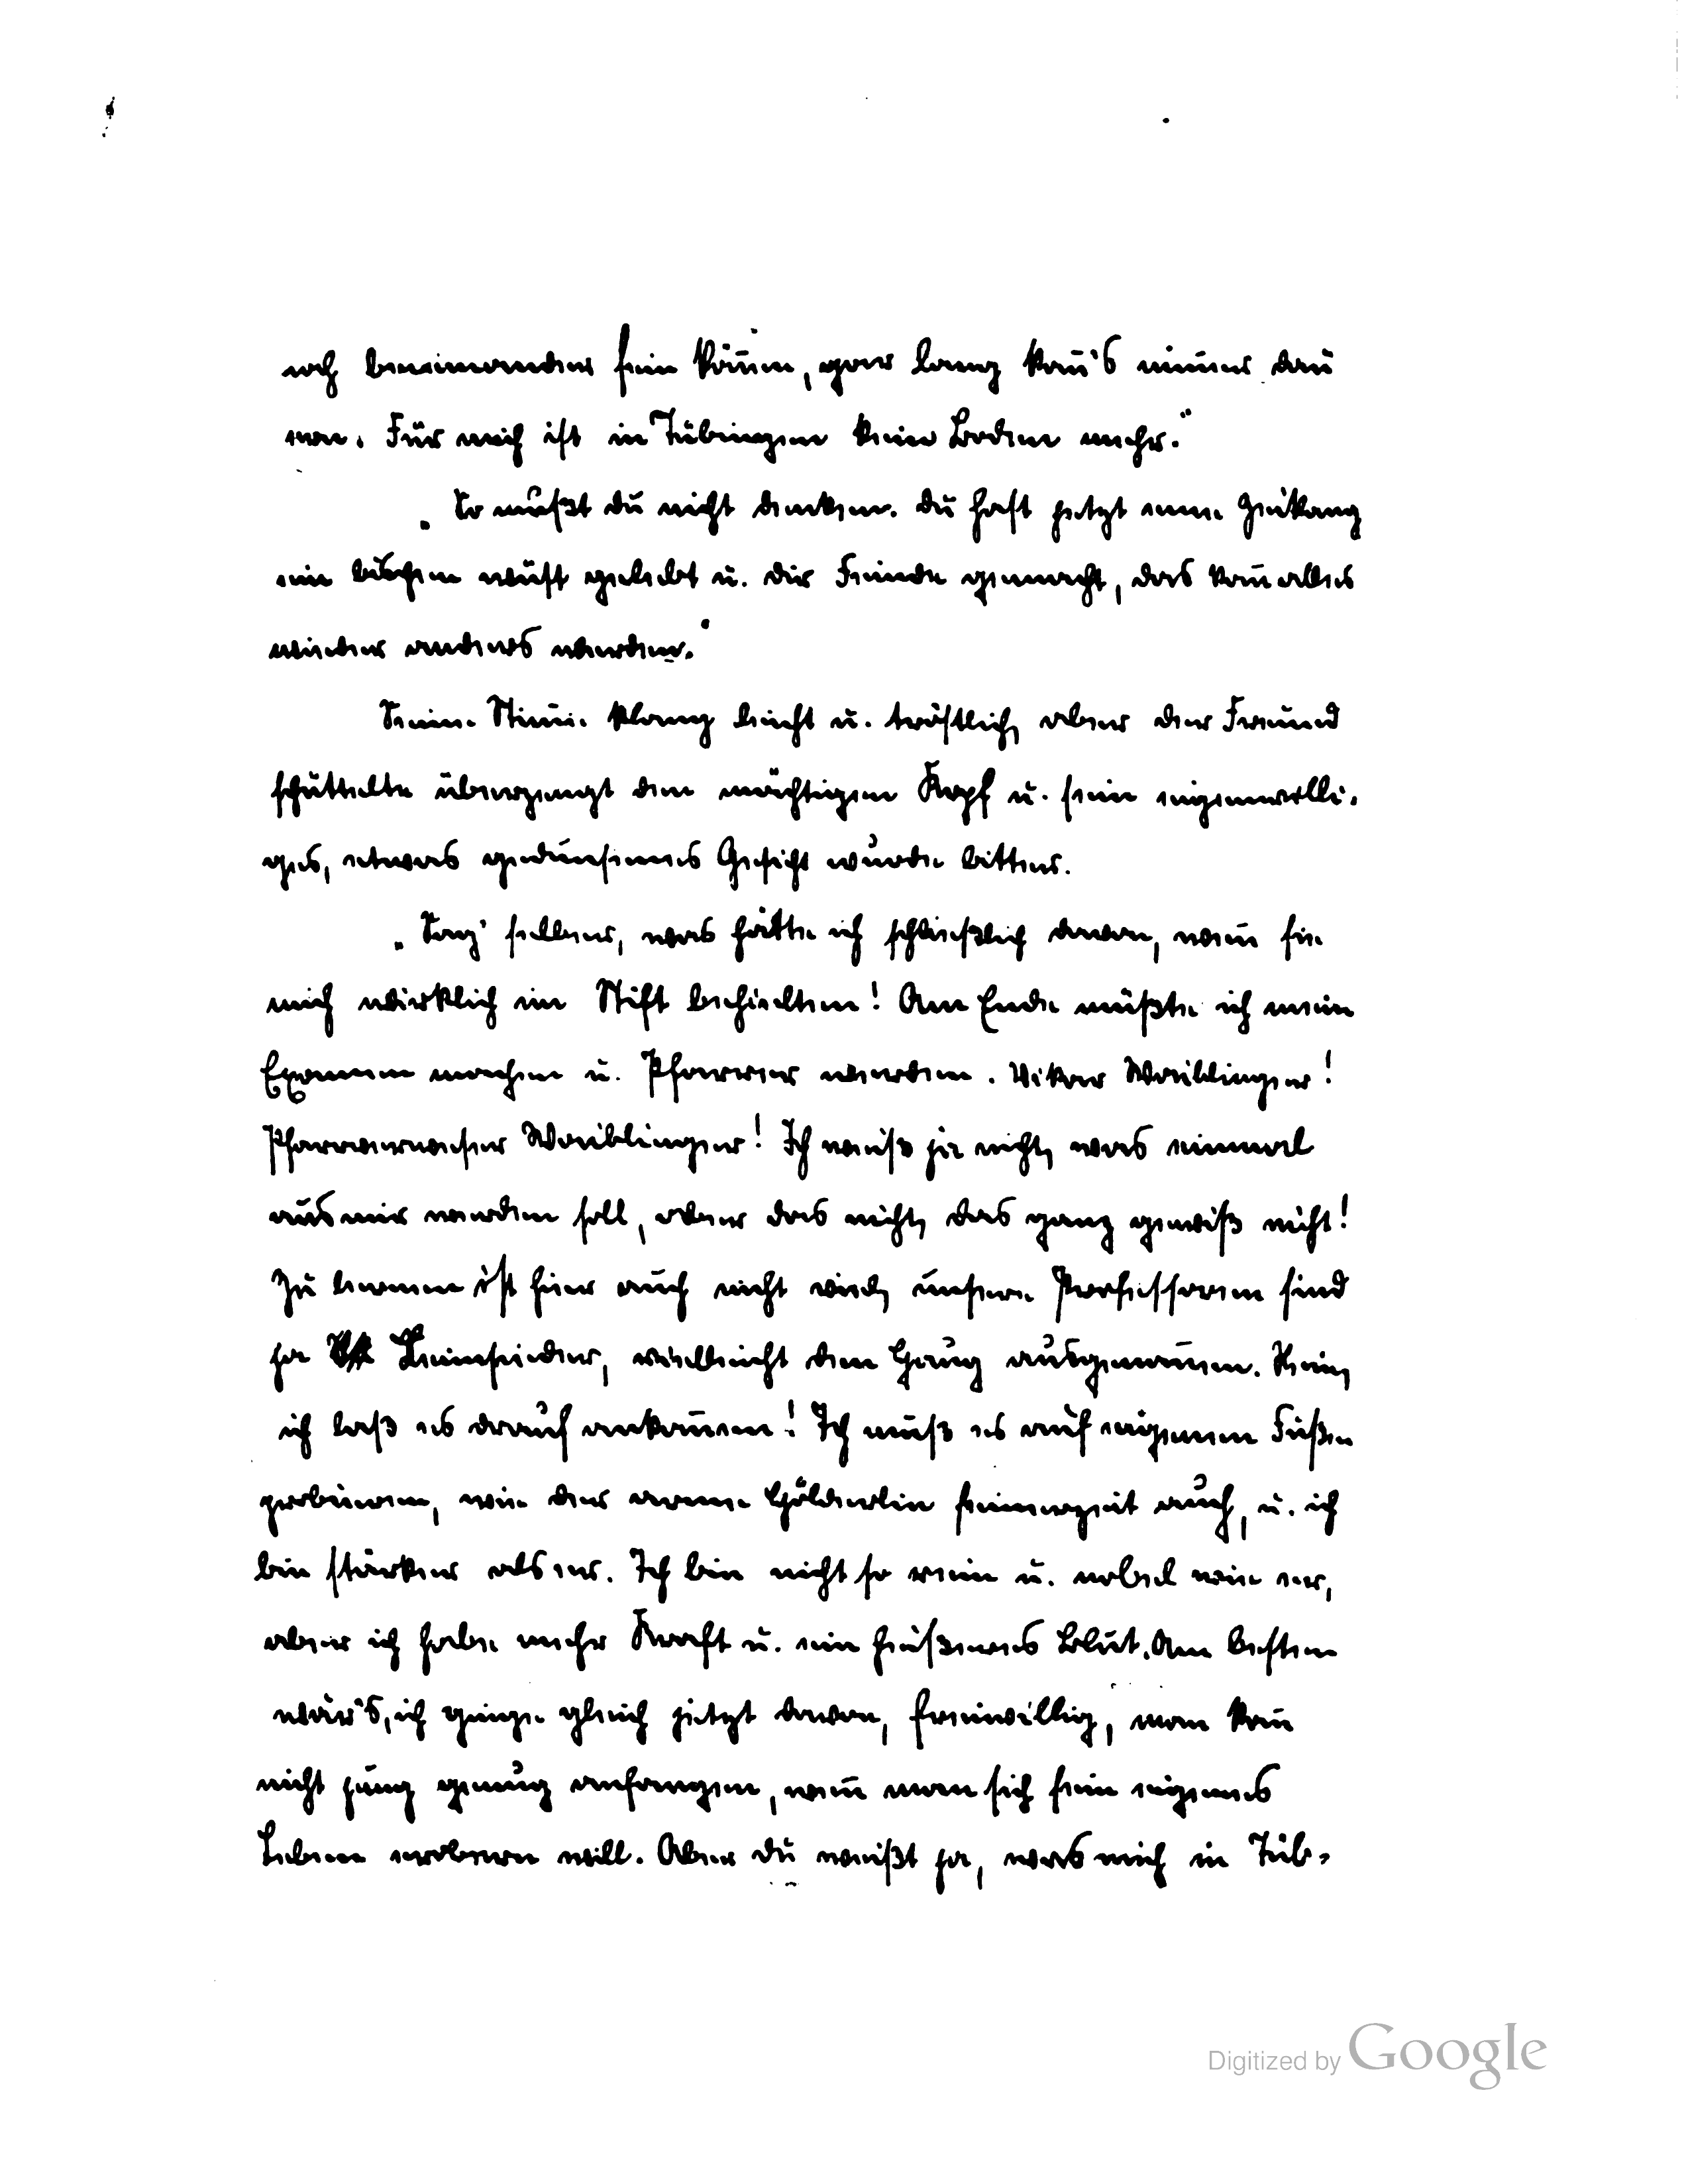 noch beieinander sein köñen, gar lang kañ's nim̄er dau
ern. Für mich ist in Tübingen kein Boden mehr."
„So mußt du nicht denken. Du hast jetzt eine Zeitlang
ein bischen wüst gelebt u. dir Feinde gemacht, das kañ alles
wieder anders werden."
Seine Stim̄e klang leicht u. tröstlich, aber der Freund
schüttelte überzeugt den mächtigen Kopf u. sein eigenwilli-
ges, etwas gedunsenes Gesicht wurde bitter.
„Sag' selber, was hätte ich schließlich davon, weñ sie
mich wirklich im Stift behielten! Am Ende müßte ich mein
Examen machen u. Pfarrer werden. Vikar Waiblinger!
Pfarrverweser Waiblinger! Ich weiß ja nicht, was einmal
aus mir werden soll, aber das nicht, das ganz gewiß nicht!
Zu lernen ist hier auch nicht viel, unsere Professoren sind
ja Leimsieder, vielleicht den Haug ausgenom̄en. Nein,
ich laß es drauf ankom̄en! Ich muß es auf eigenen Füßen
probieren, wie der arme Hölderlin seinerzeit auch, u. ich
bin stärker als er. Ich bin nicht so rein u. nobel wie er,
aber ich habe mehr Kraft u. ein heißeres Blut. Am besten
wär's, ich ginge gleich jetzt davon, freiwillig, man kañ
nicht jung genug anfangen, weñ man sich sein eigenes
Leben erobern will. Aber du weißt ja, was mich in Tüb-
Digitized by Google